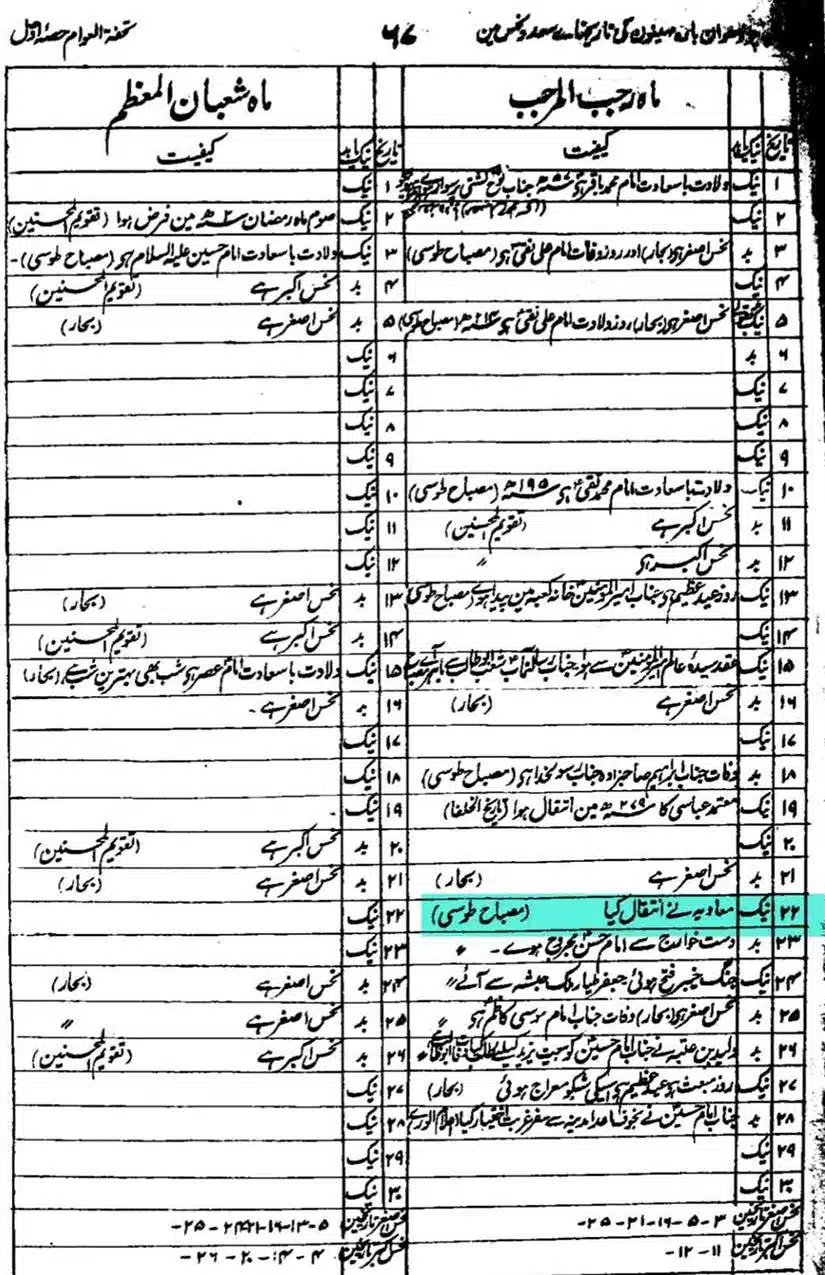 تحفۃ العوام حصہ اول
۶۷
تاریخہائے سعد و نحس مین
ماہ رجب المرجب
تاریخ نیک یا بد کیفیت
۱ نیک ولادت باسعادت امام محمد باقرؑ ۵۷ھ جناب نوحؑ کشتی پر سوار
۲ نیک
۳ بد نحس اصغر ہو (بحار) اور روز وفات امام علی نقیؑ ہو (مصباح طوسی)
۴ نیک
۵ نیک نحس اصغر ہو (بحار) روز ولادت امام علی نقیؑ ہو (مصباح طوسی)
۶ بد
۷ نیک
۸ نیک
۹ نیک
۱۰ نیک ولادت باسعادت امام محمد تقیؑ ہو ۱۹۵ھ (مصباح طوسی)
۱۱ بد نحس اکبر ہے (تقویم المحسنین)
۱۲ بد نحس اکبر ہو "
۱۳ نیک روز عید عظیم ہو جناب امیر المومنینؑ خانہ کعبہ مین پیدا ہوے (مصباح طوسی)
۱۴ نیک
۱۵ نیک عقد سیدۂ عالم امیر المومنینؑ سے ہوا جناب رسالتمآبؐ شعب ابوطالب سے باہر آے
۱۶ بد نحس اصغر ہے (بحار)
۱۷ نیک
۱۸ بد وفات جناب ابراہیم صاحبزادہ جناب رسولخدا ہو (مصباح طوسی)
۱۹ نیک معتمد عباسی کا ۲۷۹ھ مین انتقال ہوا (تاریخ الخلفا)
۲۰ نیک
۲۱ بد نحس اصغر ہے (بحار)
۲۲ نیک معاویہ نے انتقال کیا (مصباح طوسی)
۲۳ بد دست خوارج سے امام حسنؑ مجروح ہوے - "
۲۴ نیک جنگ خیبر فتح ہوئی جعفر طیار ملک حبشہ سے آئے "
۲۵ بد نحس اصغر ہو (بحار) وفات جناب امام موسی کاظمؑ ہو "
۲۶ بد ولید بن عتبہ نے جناب امام حسینؑ کو بیعت یزید کیلیے طلب کیا
۲۷ نیک روز مبعث ہو عید عظیم ہو اسیکی شبکو معراج ہوئی (بحار)
۲۸ بد جناب امام حسینؑ نے بخوف اعدا مدینہ سے سفر غربت اختیار کیا (اعلام الوری)
۲۹ نیک
۳۰ نیک
نحس اصغر تاریخین ۳-۵-۱۶-۲۱-۲۵-
نحس اکبر تاریخین ۱۱-۱۲-
ماہ شعبان المعظم
تاریخ نیک یا بد کیفیت
۱ نیک
۲ نیک صوم ماہ رمضان ۲ھ مین فرض ہوا (تقویم المحسنین)
۳ نیک ولادت باسعادت امام حسین علیہ السلام ہو (مصباح طوسی)-
۴ بد نحس اکبر ہے (تقویم المحسنین)
۵ بد نحس اصغر ہے (بحار)
۶ نیک
۷ نیک
۸ نیک
۹ نیک
۱۰ نیک
۱۱ نیک
۱۲ نیک
۱۳ بد نحس اصغر ہے (بحار)
۱۴ بد نحس اکبر ہے (تقویم المحسنین)
۱۵ نیک ولادت باسعادت امام عصر ہو شب بھی بہترین شب ہے (بحار)
۱۶ بد نحس اصغر ہے -
۱۷ نیک
۱۸ نیک
۱۹ نیک
۲۰ بد نحس اکبر ہے (تقویم المحسنین)
۲۱ بد نحس اصغر ہے (بحار)
۲۲ نیک
۲۳ نیک
۲۴ بد نحس اصغر ہے (بحار)
۲۵ بد نحس اصغر ہے "
۲۶ بد نحس اکبر ہے (تقویم المحسنین)
۲۷ نیک
۲۸ نیک
۲۹ نیک
۳۰ نیک
نحس اصغر تاریخین ۵-۱۳-۱۶-۲۱-۲۴-۲۵-
نحس اکبر تاریخین ۴-۱۴-۲۰-۲۶-